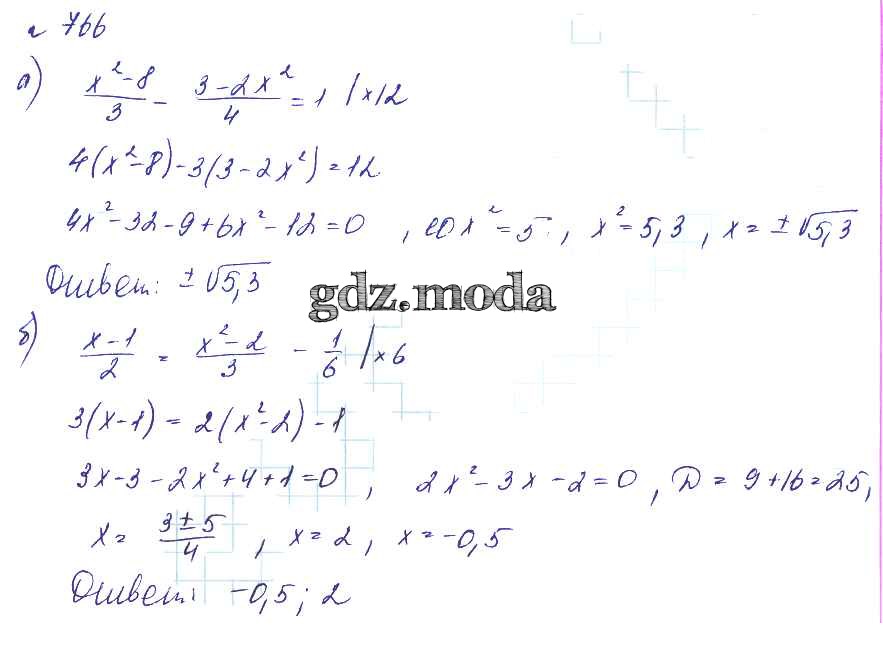 № 766
а) x²-8/3 - 3-2x²/4 = 1 /×12
4(x²-8)-3(3-2x²)=12
4x²-32-9+6x²-12=0 , 10x²=5 , x²=5,3 , x=±√5,3
Ответ: ±√5,3
gdz.moda
б) x-1/2 = x²-2/3 - 1/6 /×6
3(x-1) = 2(x²-2)-1
3x-3-2x²+4+1=0 , 2x²-3x-2=0 , D = 9+16=25,
x = 3±5/4 , x=2 , x=-0,5
Ответ: -0,5; 2